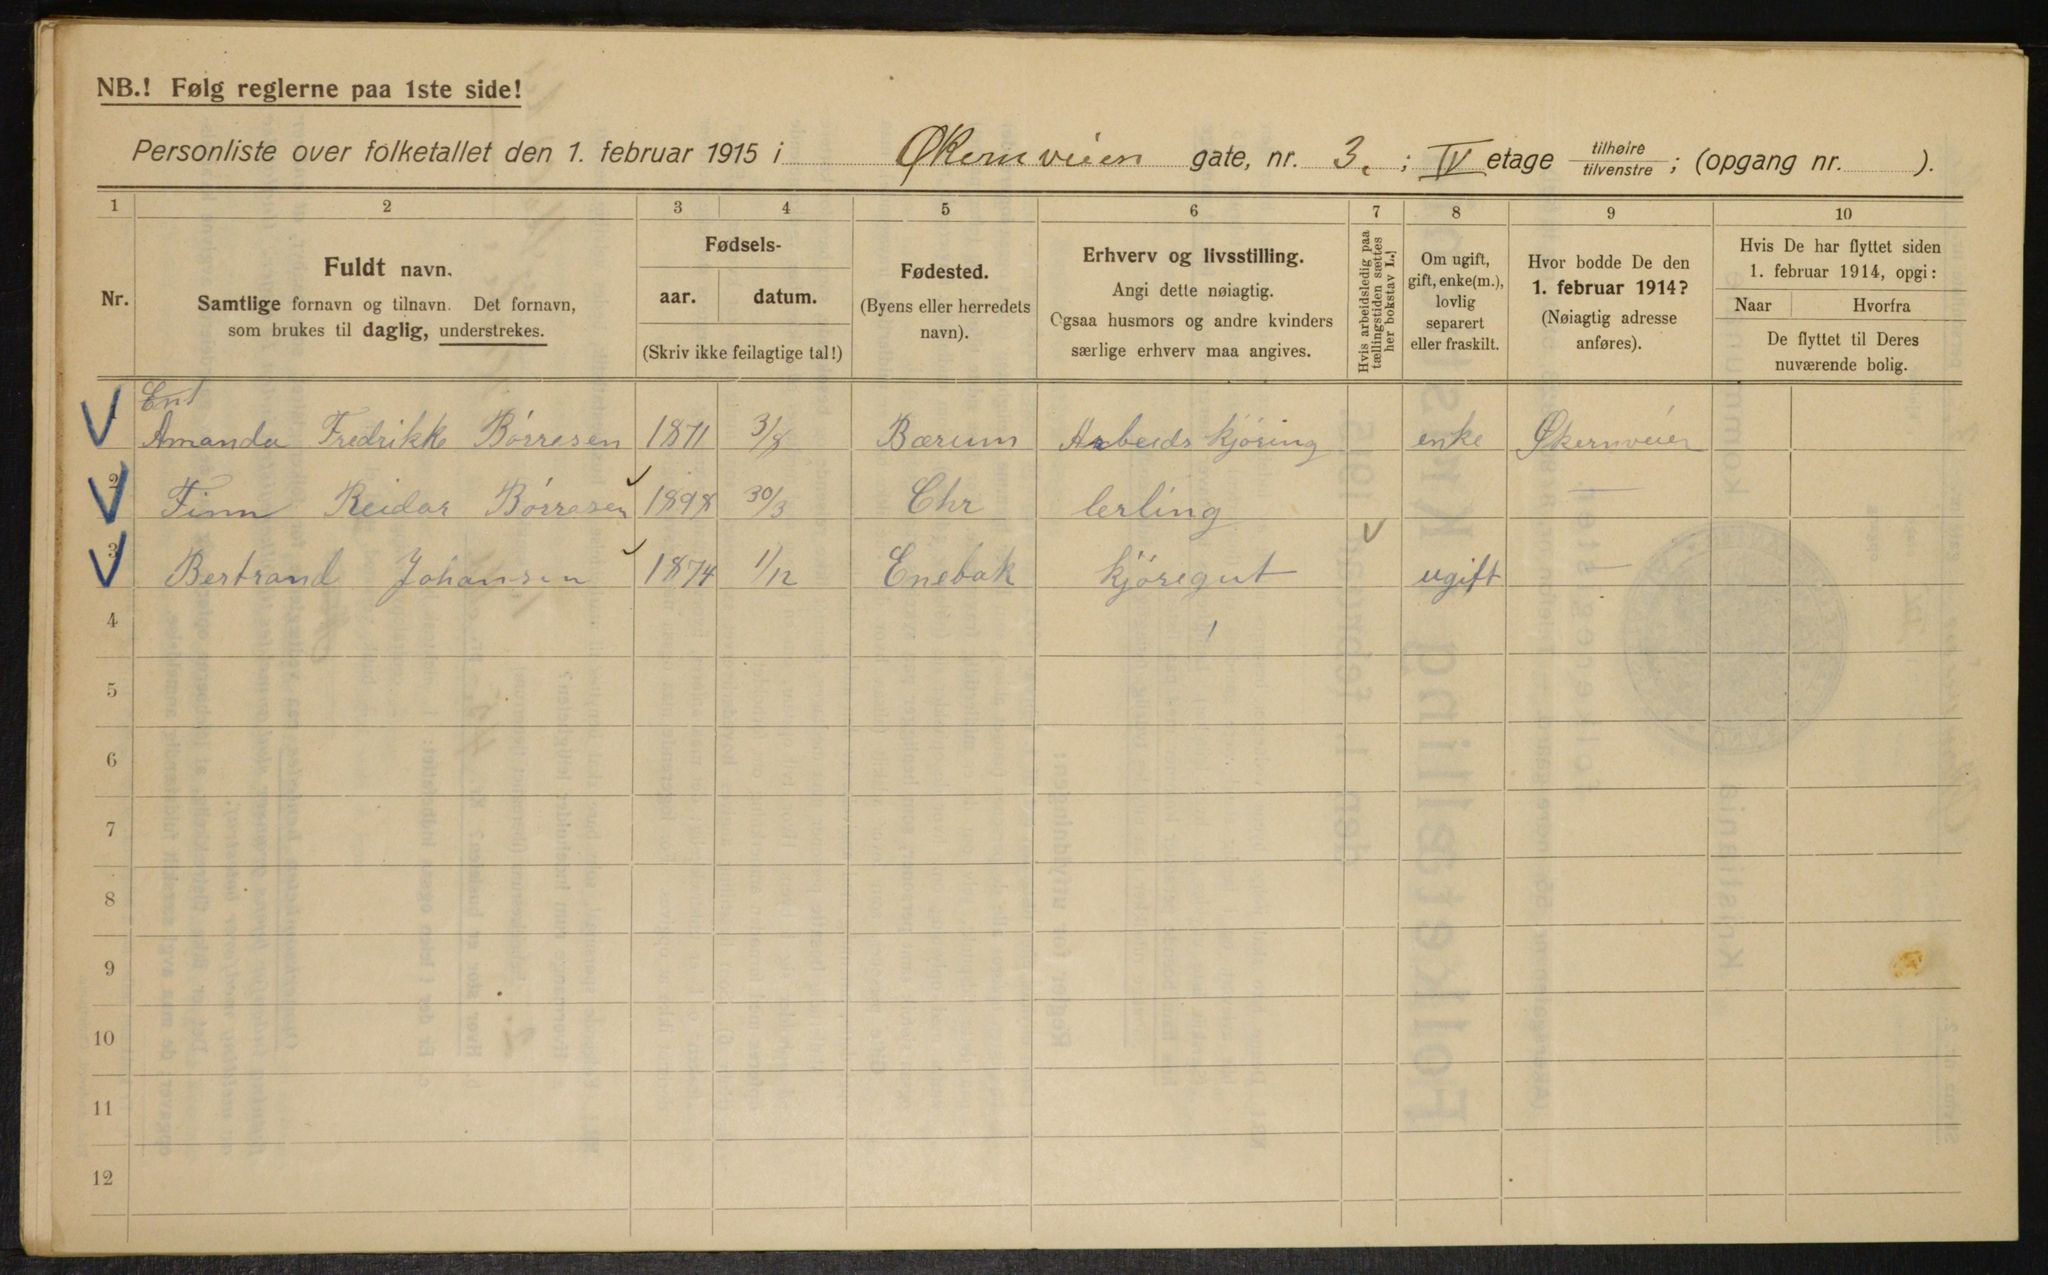 NB.! Følg reglerne paa 1ste side!
Personliste over folketallet den 1. februar 1915 i Økernveien gate, nr. 3. ; IV etage tilhøire / tilvenstre ; (opgang nr. ).
1 2 3 4 5 6 7 8 9 10
Nr.
Fuldt navn.
Samtlige fornavn og tilnavn. Det fornavn,
som brukes til daglig, understrekes.
Fødsels-
aar. datum.
(Skriv ikke feilagtige tal!)
Fødested.
(Byens eller herredets
navn).
Erhverv og livsstilling.
Angi dette nøiagtig.
Ogsaa husmors og andre kvinders
særlige erhverv maa angives.
Hvis arbeidsledig paa
tællingstiden sættes
her bokstav L.)
Om ugift,
gift, enke(m.),
lovlig
separert
eller fraskilt.
Hvor bodde De den
1. februar 1914?
(Nøiagtig adresse
anføres).
Hvis De har flyttet siden
1. februar 1914, opgi:
Naar Hvorfra
De flyttet til Deres
nuværende bolig.
Enk
1 Amanda Fredrikke Börresen 1871 3/8 Bærum Arbeids kjöring enke Økernveien
2 Finn Reidar Börresen 1898 30/3 Chr lerling —
3 Bertrand Johansen 1874 1/12 Enebak kjöregut ugift —
4
5
6
7
8
9
10
11
12